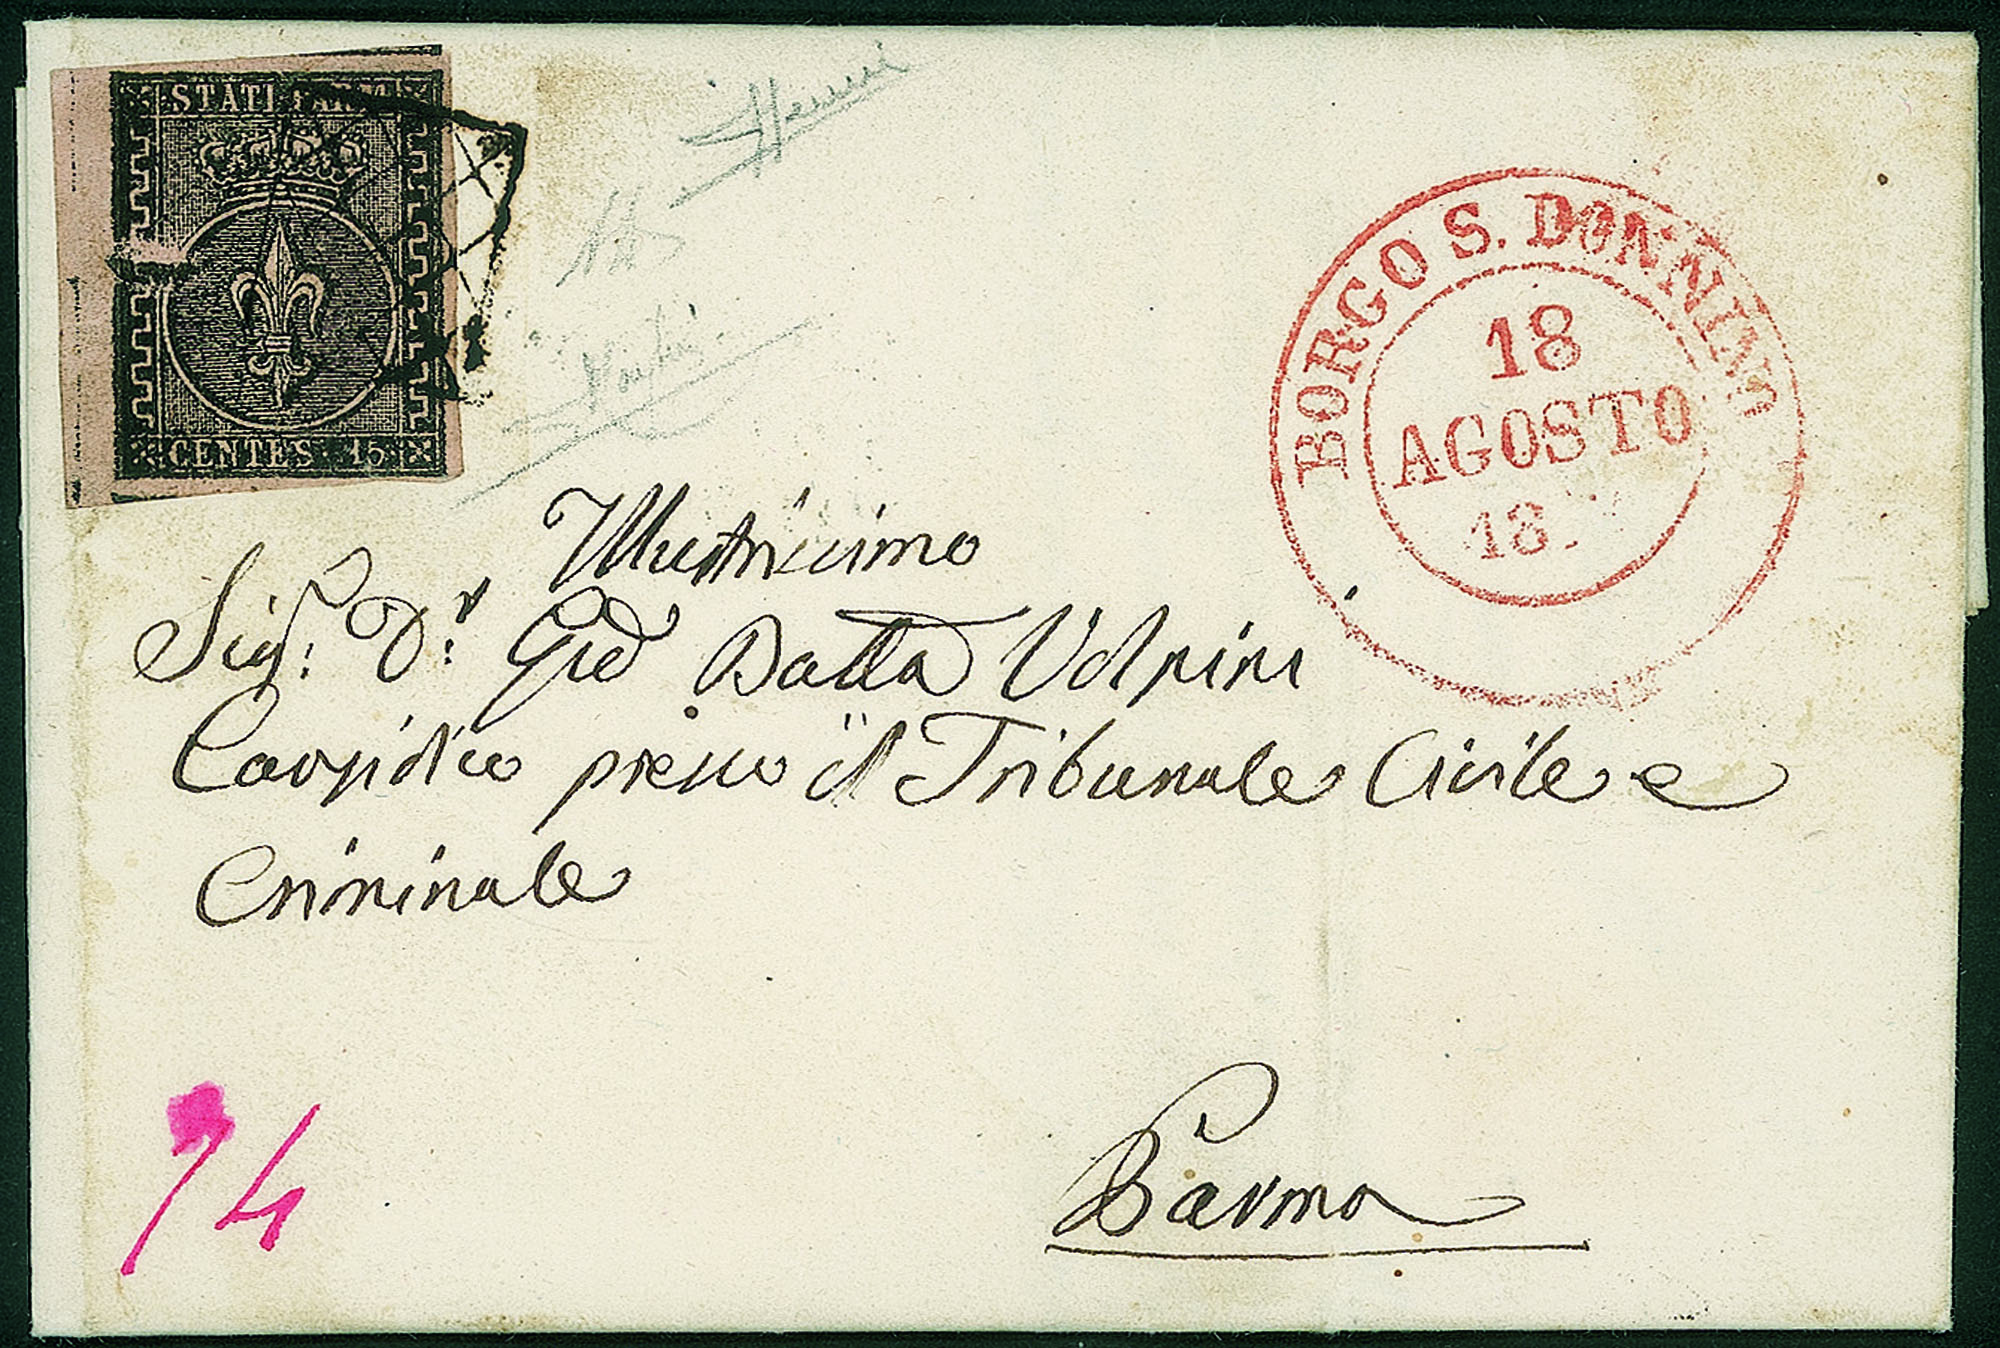 STATI PARM
CENTES: 15
BORGO S. DONNINO
18
AGOSTO
18
Illustrissimo
Sigr: Dr: Gio Batta Volpini
Causidico presso il Tribunale Civile e
Criminale
Parma
74